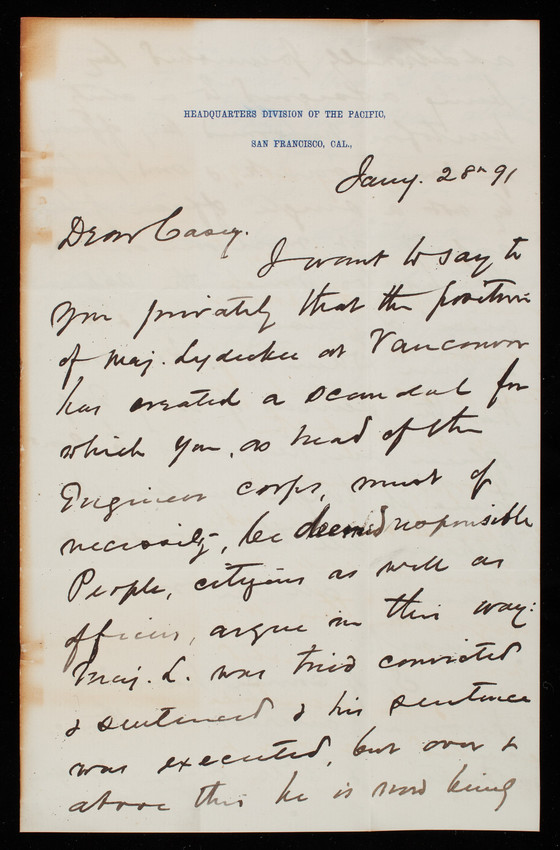 HEADQUARTERS DIVISION OF THE PACIFIC,
SAN FRANCISCO, CAL.,
Jany. 28th 91
Dear Casey.
I want to say to
you privately that the position
of Maj. Lydecker at Vancouver
has created a scandal for
which you, as head of the
Engineer corps, must of
necessity, be deemed responsible
People, citizens as well as
officers, argue in this way:
Maj. L. was tried convicted
& sentenced & his sentence
was executed, but over &
above this he is now being